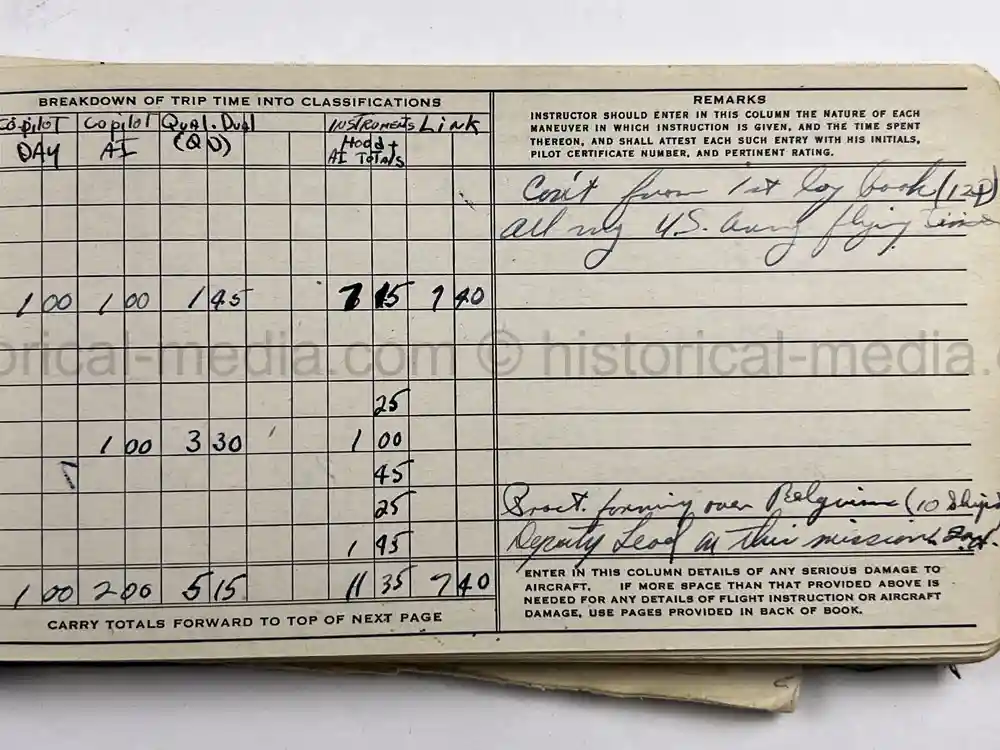 BREAKDOWN OF TRIP TIME INTO CLASSIFICATIONS
Copilot Copilot Qual. Dual INSTRUMENTS LINK
DAY AI (QD) Hood + AI TOTALS
1 00 1 00 1 45 7 15 7 40
25
1 00 3 30 1 00
45
25
1 45
1 00 2 00 5 15 11 35 7 40
CARRY TOTALS FORWARD TO TOP OF NEXT PAGE
REMARKS
INSTRUCTOR SHOULD ENTER IN THIS COLUMN THE NATURE OF EACH
MANEUVER IN WHICH INSTRUCTION IS GIVEN, AND THE TIME SPENT
THEREON, AND SHALL ATTEST EACH SUCH ENTRY WITH HIS INITIALS,
PILOT CERTIFICATE NUMBER, AND PERTINENT RATING.
Con't from 1st log book
all my U.S. army flying time
Pract. forming over Belgium (10 Ships
Deputy Lead on this mission
ENTER IN THIS COLUMN DETAILS OF ANY SERIOUS DAMAGE TO
AIRCRAFT. IF MORE SPACE THAN THAT PROVIDED ABOVE IS
NEEDED FOR ANY DETAILS OF FLIGHT INSTRUCTION OR AIRCRAFT
DAMAGE, USE PAGES PROVIDED IN BACK OF BOOK.
orical-media.com © historical-media.c